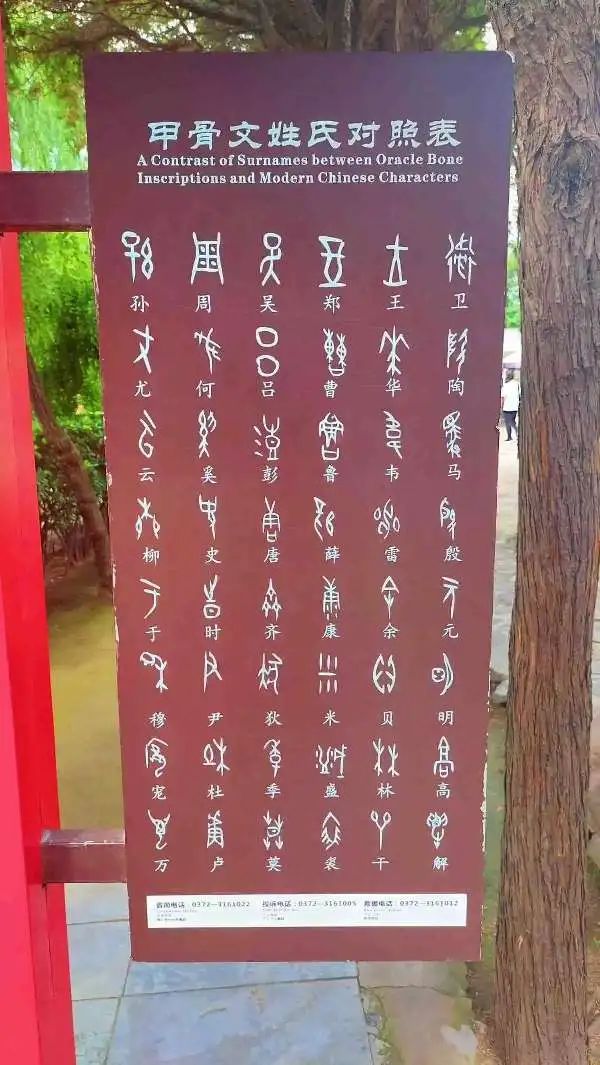 甲骨文姓氏对照表
A Contrast of Surnames between Oracle Bone
Inscriptions and Modern Chinese Characters
孙 周 吴 郑 王 卫
尤 何 吕 曹 华 陶
云 奚 彭 鲁 韦 马
柳 史 唐 薛 雷 殷
于 时 齐 康 余 元
穆 尹 狄 米 贝 明
宠 杜 季 盛 林 高
万 卢 莫 裘 干 解
咨询电话：0372—3161022 投诉电话：0372—3161005 救援电话：0372—3161012